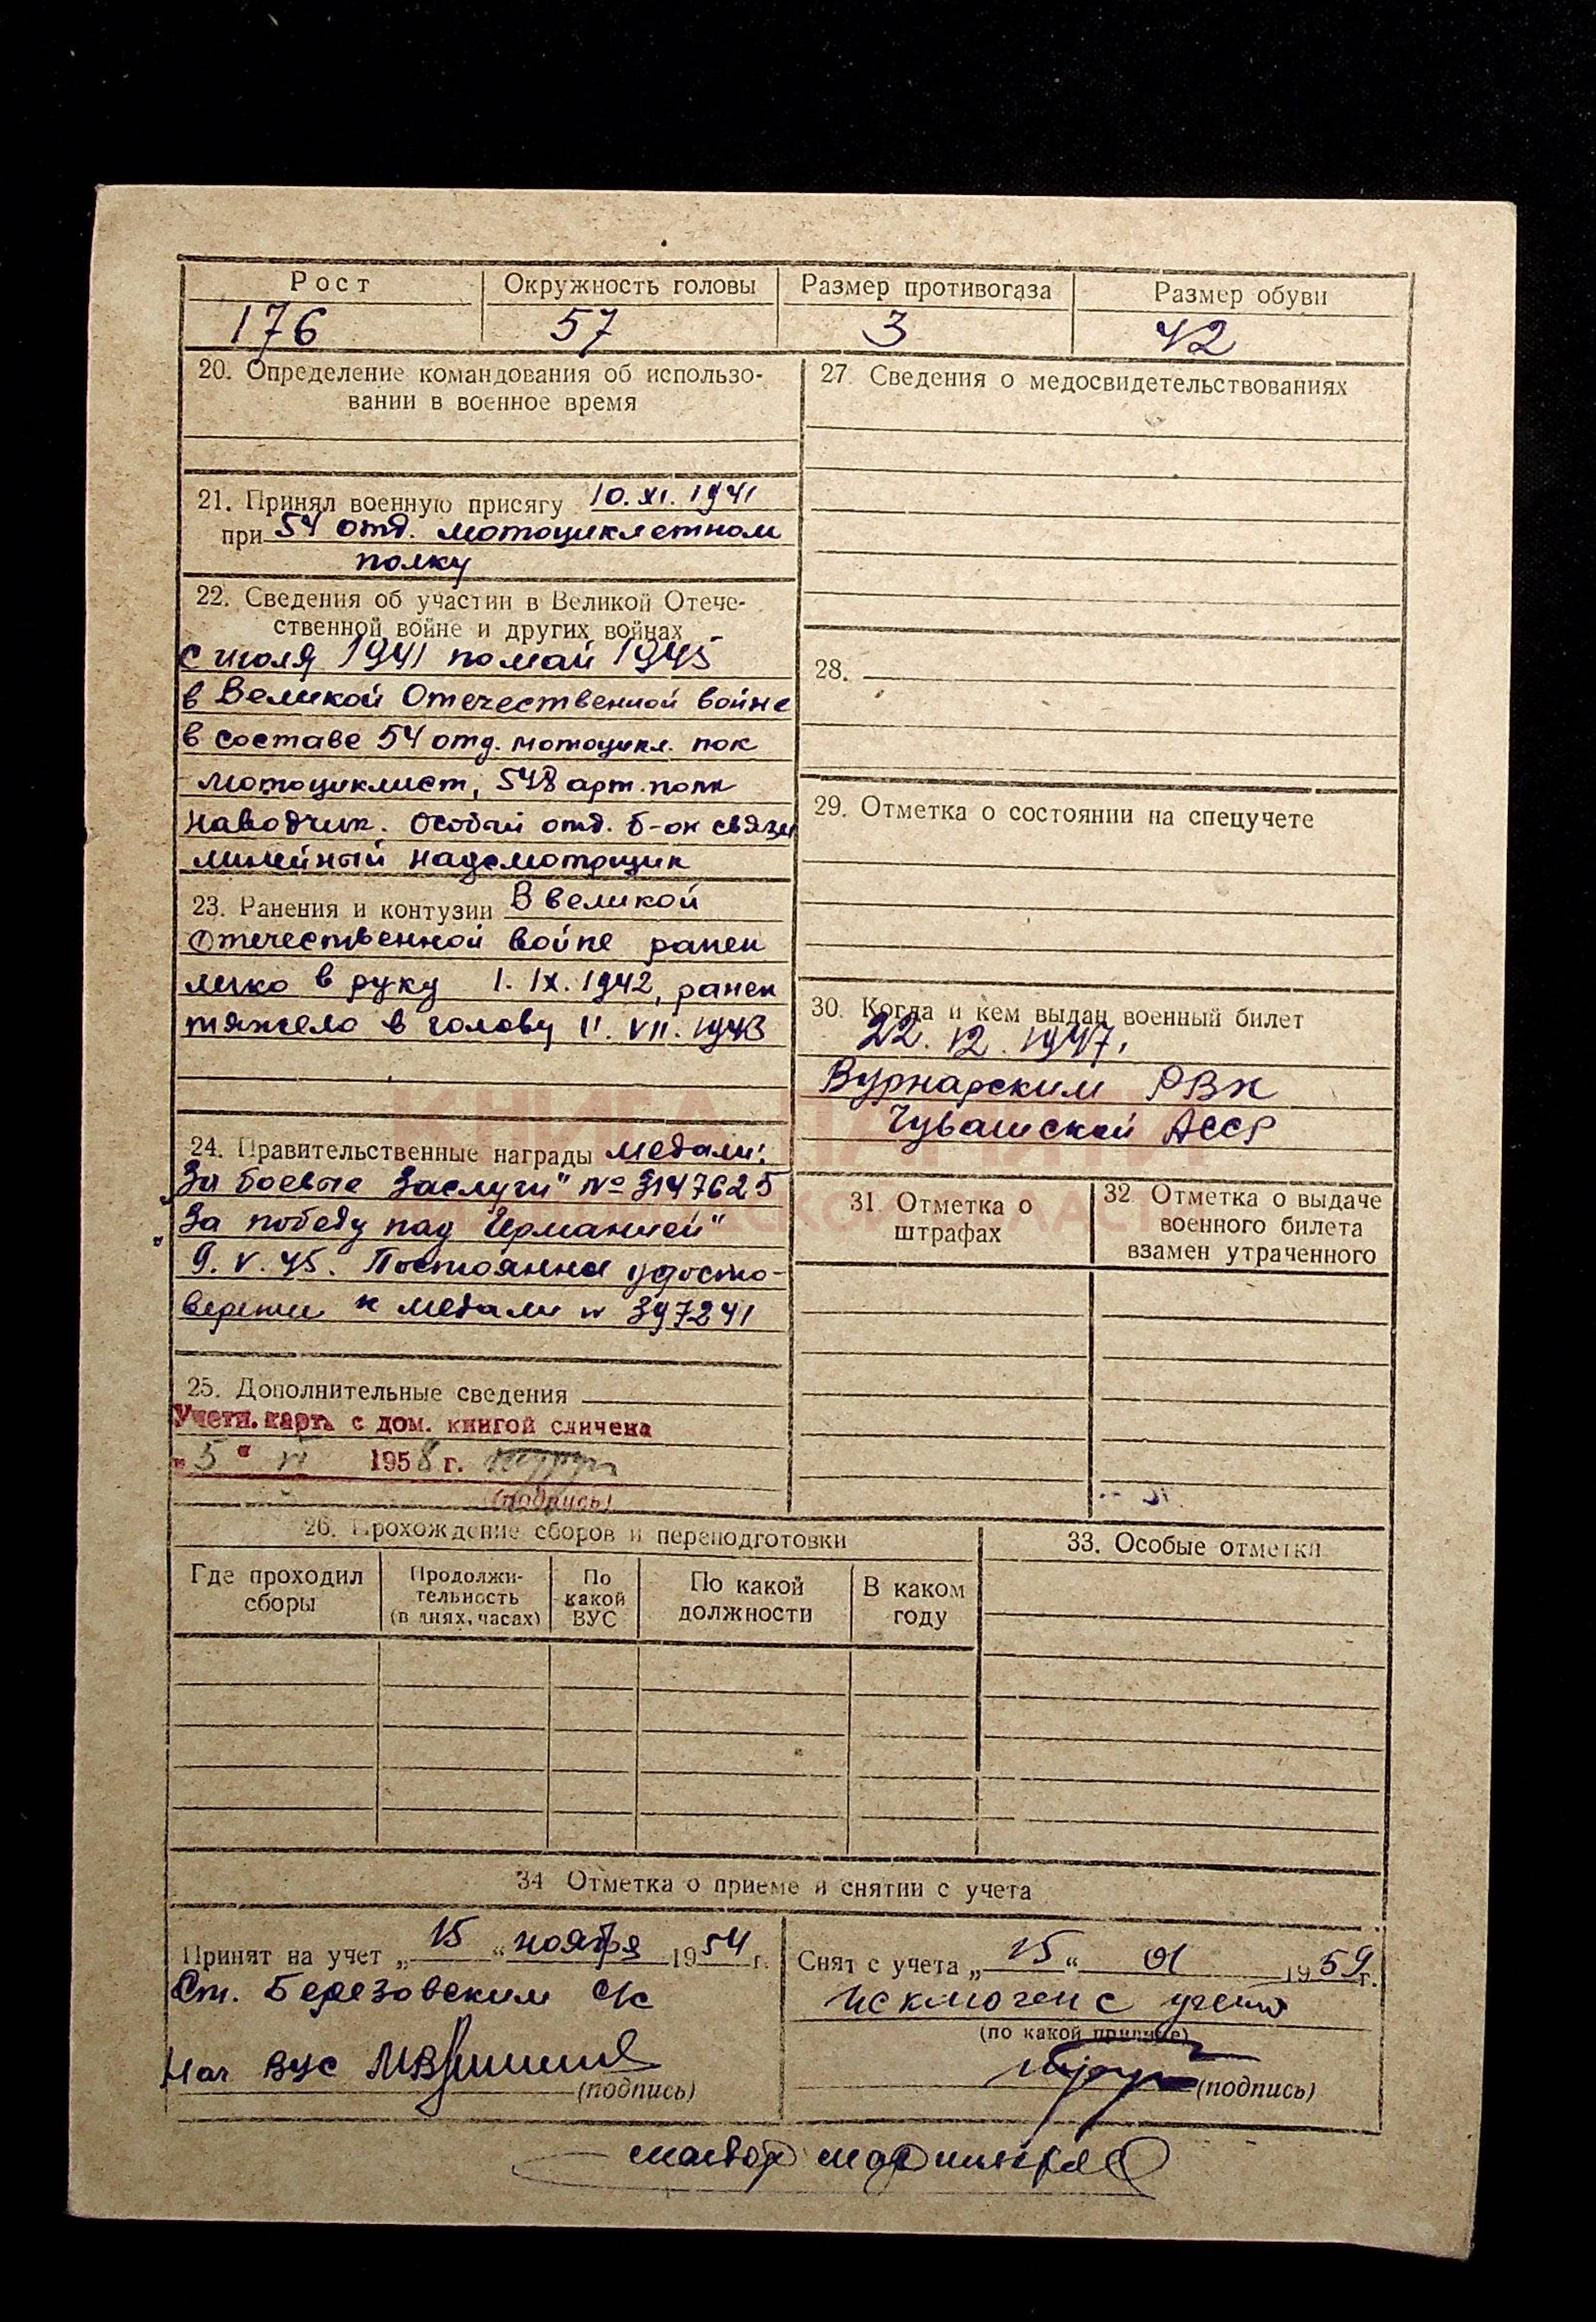 Рост
Окружность головы
Размер противогаза
Размер обуви
176
57
3
42
20. Определение командования об использо-
вании в военное время
21. Принял военную присягу 10.XI.1941
при 54 отд. мотоциклетном
полку
22. Сведения об участии в Великой Отече-
ственной войне и других войнах
с июля 1941 по май 1945
в Великой Отечественной войне
в составе 54 отд. мотоцикл. пок
мотоциклист, 548 арт. полк
наводчик. Особый отд. б-он связи
линейный надсмотрщик
23. Ранения и контузии В великой
Отечественной войне ранен
легко в руку 1.IX.1942, ранен
тяжело в голову 11.VII.1943
24. Правительственные награды медали:
„За боевые заслуги" № 3147625
„За победу над Германией"
9.V.45. Постоянное удосто-
верение к медали № 397241
25. Дополнительные сведения
Учетн. карт. с дом. книгой сличена
„5" VI 1958 г.
(подпись)
27. Сведения о медосвидетельствованиях
28.
29. Отметка о состоянии на спецучете
30. Когда и кем выдан военный билет
22.12.1947.
Вурнарским РВК
Чувашской АССР
31. Отметка о
штрафах
32. Отметка о выдаче
военного билета
взамен утраченного
КНИГА ПАМЯТИ
26. Прохождение сборов и переподготовки
Где проходил
сборы
Продолжи-
тельность
(в днях, часах)
По
какой
ВУС
По какой
должности
В каком
году
33. Особые отметки
34 Отметка о приеме и снятии с учета
Принят на учет „15" ноября 1954 г.
Ст. Березовским с/с
Нач ВУС
(подпись)
Снят с учета „15" 01 1959 г.
исключен с учета
(по какой причине)
(подпись)
майор